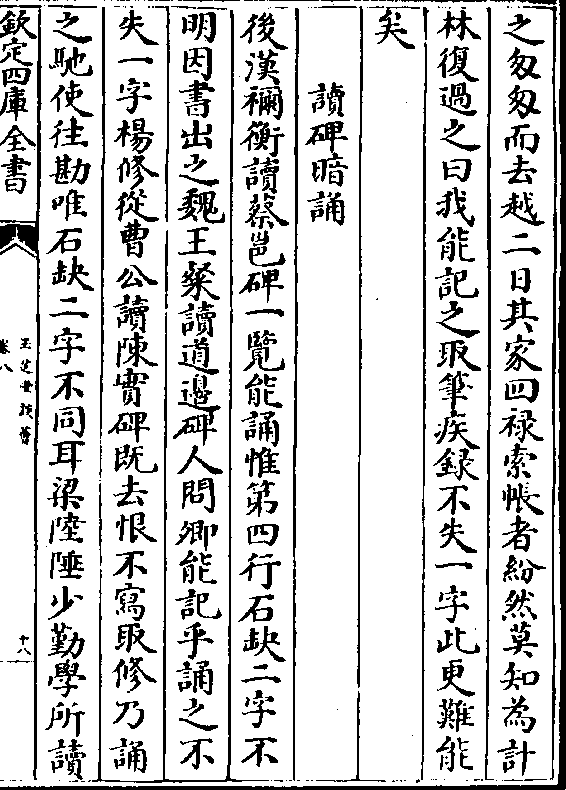 之匆匆而去越二日其家四禄索帳者紛然莫知為計
林復過之曰我能記之取筆疾録不失一字此更難能
矣
讀碑暗誦
後漢禰衡讀蔡邕碑一覽能誦惟第四行石缺二字不
明因書出之魏王粲讀道邊碑人問卿能記乎誦之不
失一字楊修從曹公讀陳寔碑既去恨不寫取修乃誦
之馳使往勘唯石缺二字不同耳梁陸陲少勤學所讀
欽定四庫全書
玉芝堂談薈
卷八
十八